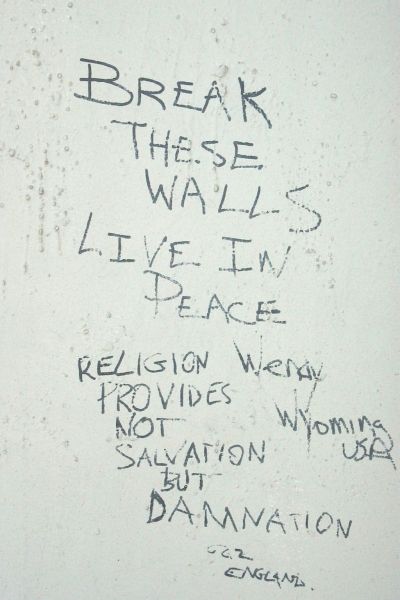 BREAK
THESE
WALLS
LIVE IN
PEACE
Wendy
Wyoming
USA
RELIGION
PROVIDES
NOT
SALVATION
BUT
DAMNATION
ENGLAND.